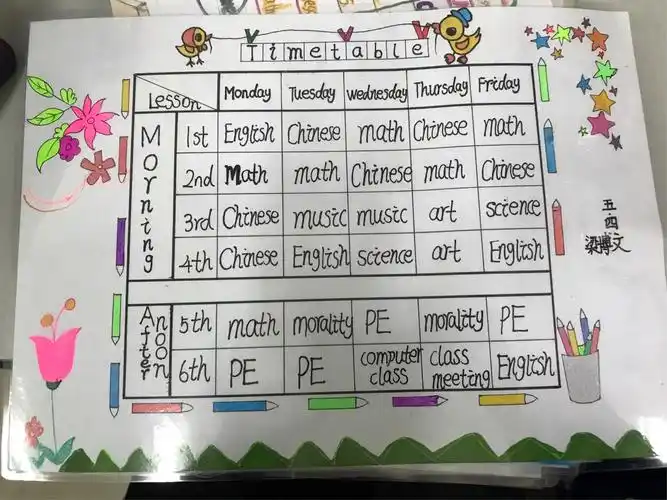 Timetable
Lesson Monday Tuesday Wednesday Thursday Friday
Morning
1st English Chinese math Chinese math
2nd Math math Chinese math Chinese
3rd Chinese music music art science
4th Chinese English science art English
Afternoon
5th math morality PE morality PE
6th PE PE computer class class meeting English
五.四
梁博文